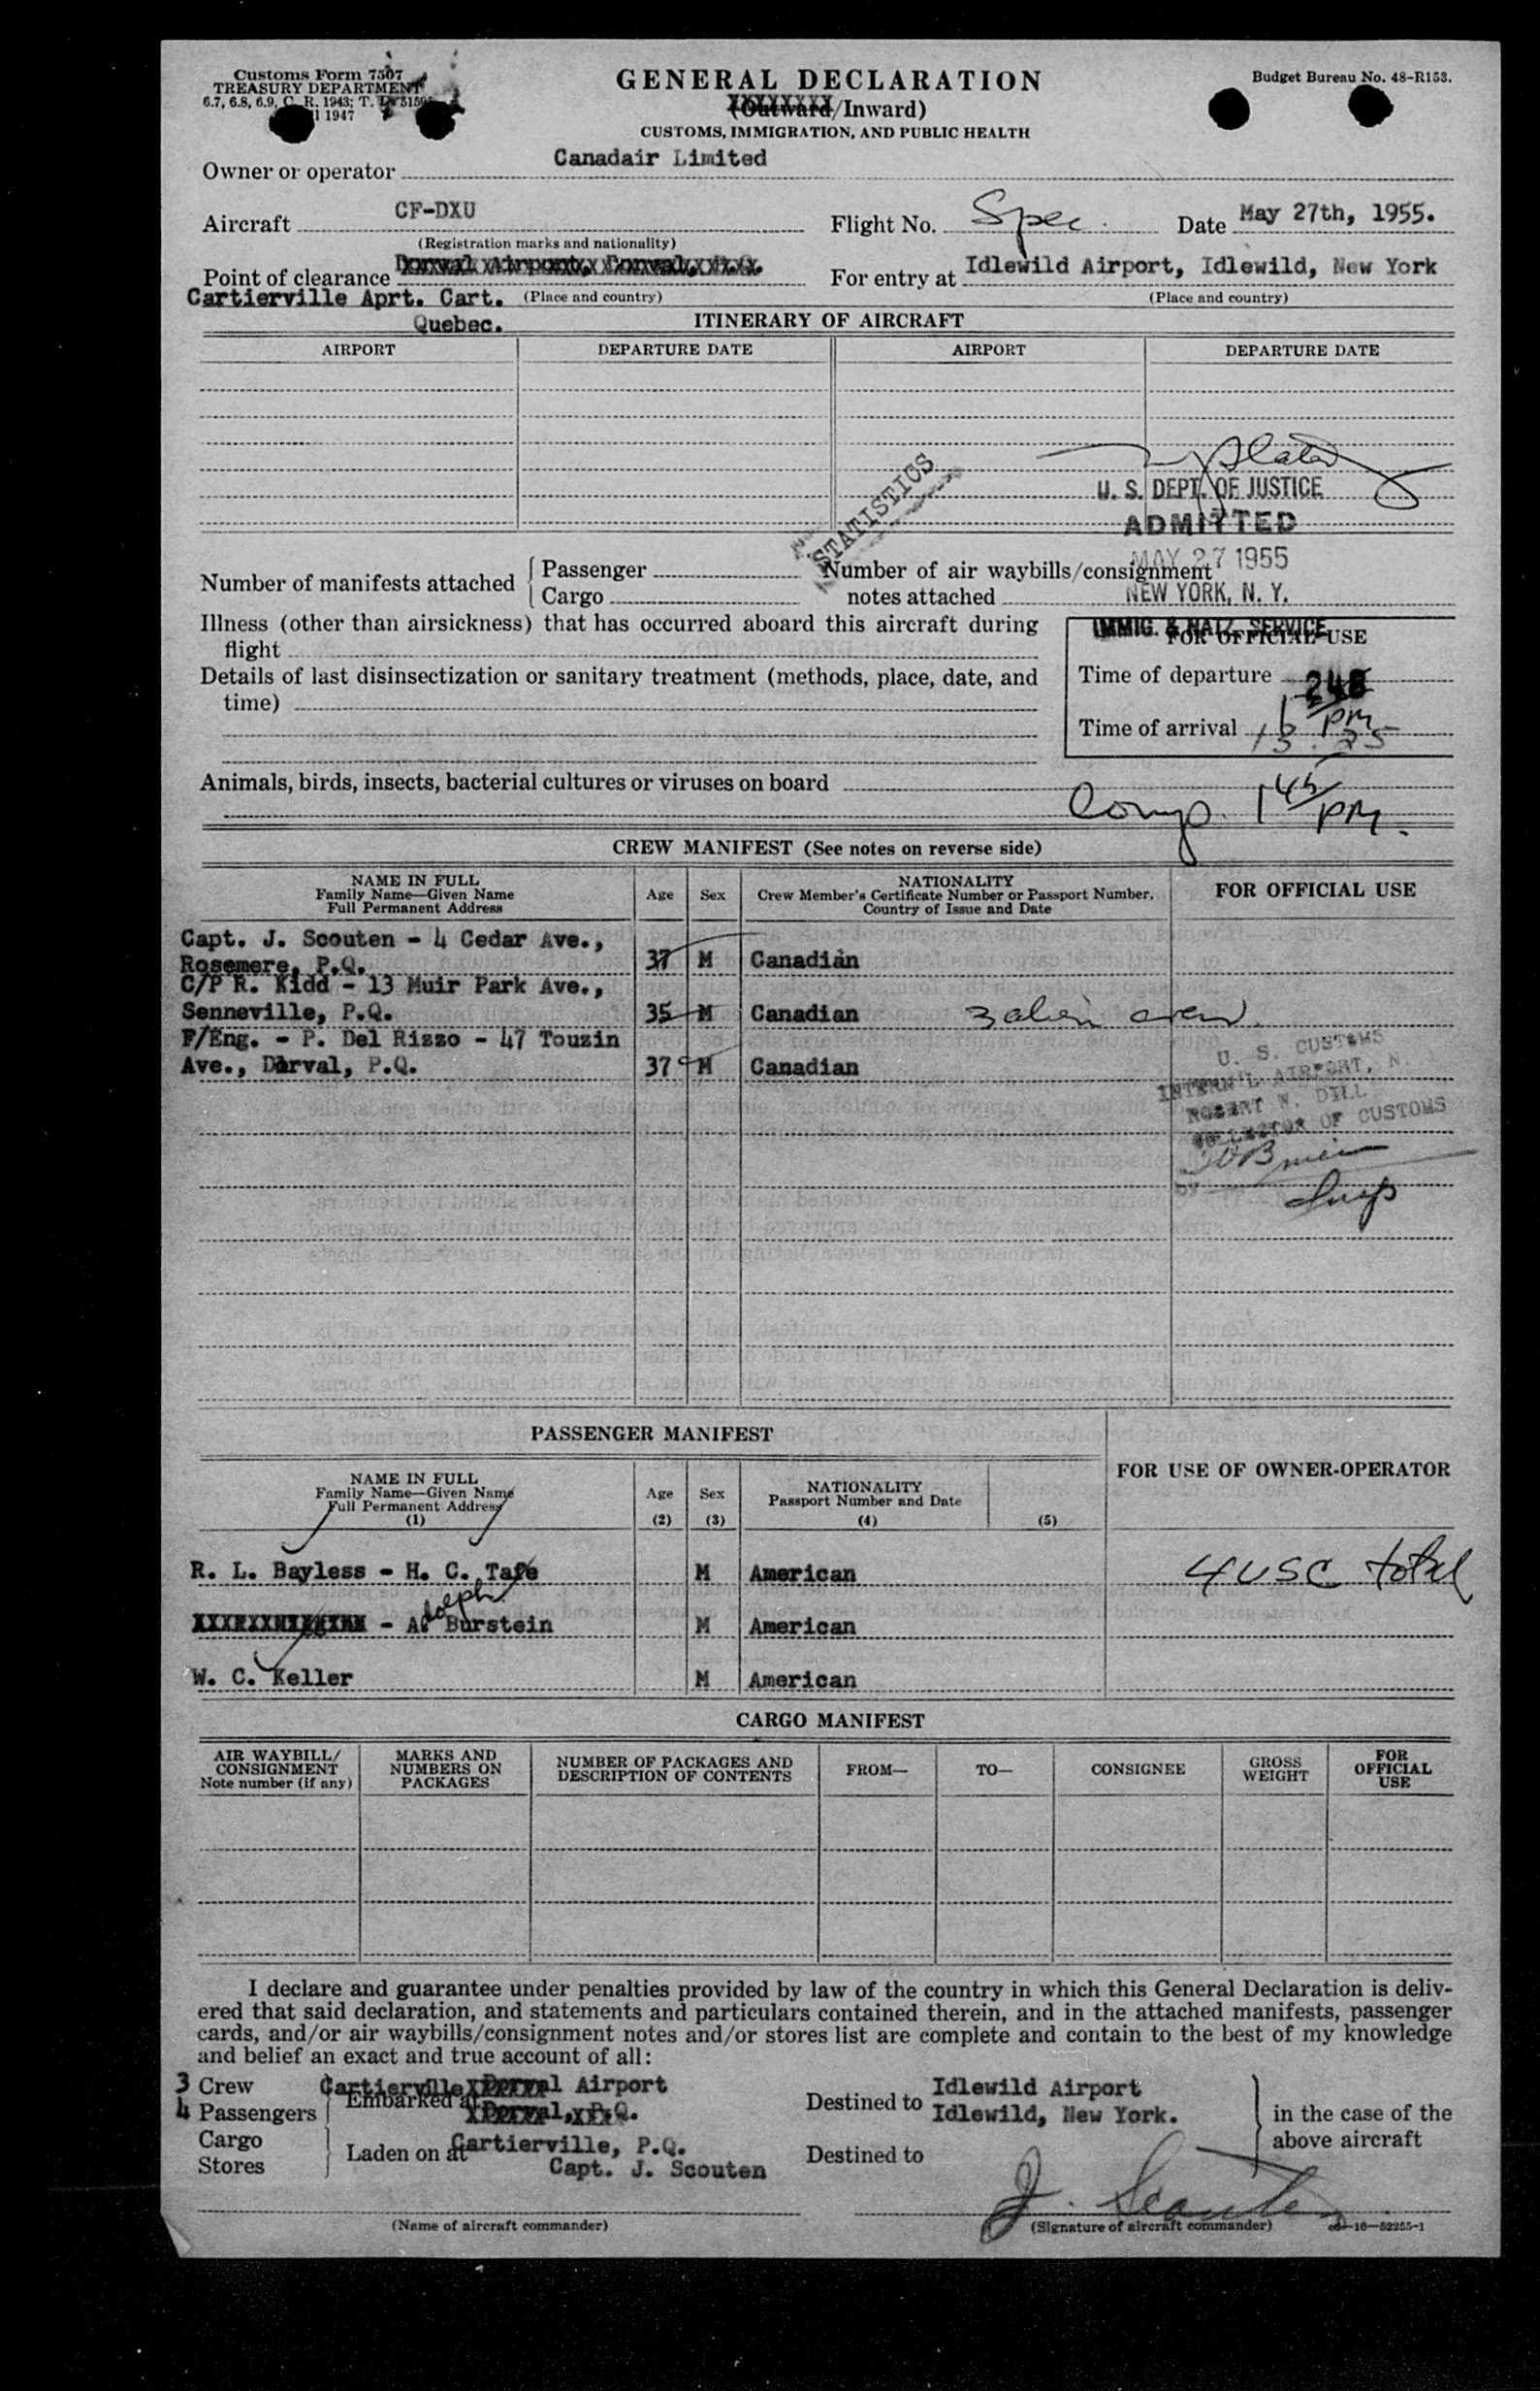 Customs Form 7507
TREASURY DEPARTMENT
6.7, 6.8, 6.9, C. R. 1943; T. D. 5150
1947
GENERAL DECLARATION
(Outward/Inward)
CUSTOMS, IMMIGRATION, AND PUBLIC HEALTH
Budget Bureau No. 48-R153.
Owner or operator Canadair Limited
Aircraft CF-DXU Flight No. Spec. Date May 27th, 1955.
(Registration marks and nationality)
Point of clearance For entry at Idlewild Airport, Idlewild, New York
Cartierville Aprt. Cart. (Place and country) (Place and country)
Quebec.
ITINERARY OF AIRCRAFT
AIRPORT DEPARTURE DATE AIRPORT DEPARTURE DATE
STATISTICS
U. S. DEPT. OF JUSTICE
ADMITTED
MAY 27 1955
NEW YORK, N. Y.
IMMIG. & NATZ. SERVICE
Number of manifests attached Passenger Number of air waybills/consignment
Cargo notes attached
Illness (other than airsickness) that has occurred aboard this aircraft during
flight
FOR OFFICIAL USE
Details of last disinsectization or sanitary treatment (methods, place, date, and
time)
Time of departure
Time of arrival
Animals, birds, insects, bacterial cultures or viruses on board
Comp. 1 45/PM.
CREW MANIFEST (See notes on reverse side)
NAME IN FULL
Family Name—Given Name
Full Permanent Address
Age Sex
NATIONALITY
Crew Member's Certificate Number or Passport Number,
Country of Issue and Date
FOR OFFICIAL USE
Capt. J. Scouten - 4 Cedar Ave.,
Rosemere, P.Q. 37 M Canadian
C/P R. Kidd - 13 Muir Park Ave.,
Senneville, P.Q. 35 M Canadian 3 alien crew.
F/Eng. - P. Del Rizzo - 47 Touzin
Ave., Dorval, P.Q. 37 M Canadian
U. S. CUSTOMS
INTERN'L AIRPORT, N.
ROBERT W. DILL
COLLECTOR OF CUSTOMS
by
Insp
PASSENGER MANIFEST
NAME IN FULL
Family Name—Given Name
Full Permanent Address
(1)
Age
(2)
Sex
(3)
NATIONALITY
Passport Number and Date
(4) (5)
FOR USE OF OWNER-OPERATOR
R. L. Bayless - H. C. Tafe M American 4 USC total
- Adolph Burstein M American
W. C. Keller M American
CARGO MANIFEST
AIR WAYBILL/
CONSIGNMENT
Note number (if any)
MARKS AND
NUMBERS ON
PACKAGES
NUMBER OF PACKAGES AND
DESCRIPTION OF CONTENTS
FROM— TO— CONSIGNEE
GROSS
WEIGHT
FOR
OFFICIAL
USE
I declare and guarantee under penalties provided by law of the country in which this General Declaration is deliv-
ered that said declaration, and statements and particulars contained therein, and in the attached manifests, passenger
cards, and/or air waybills/consignment notes and/or stores list are complete and contain to the best of my knowledge
and belief an exact and true account of all:
3 Crew Cartierville Airport
4 Passengers Embarked at
Destined to Idlewild Airport
Idlewild, New York.
in the case of the
above aircraft
Cargo
Stores
Laden on at Cartierville, P.Q.
Destined to
Capt. J. Scouten
J. Scouten
(Name of aircraft commander) (Signature of aircraft commander) 16—52255-1